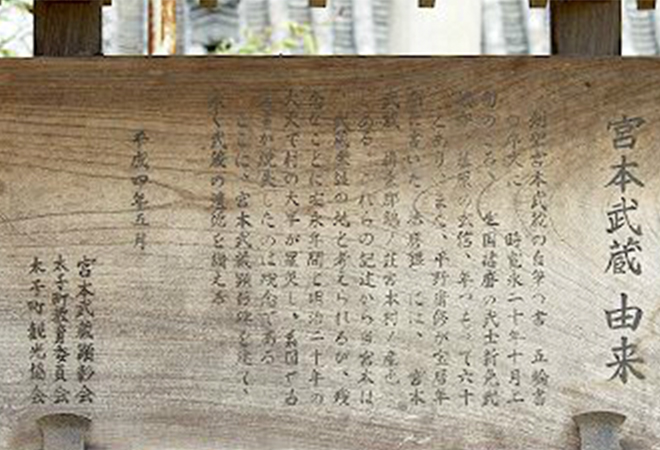 宮本武蔵 由来
剣聖宮本武蔵の自筆の書 五輪書
の序文に 時寛永二十年十月上
旬のころ 生国播磨の武士新免武
藤原の玄信、年つもって六十
とあり、また、平野庸脩が宝暦年
間に書いた 播磨鑑 には、宮本
武蔵 揖東郡鵤ノ辺宮本村ノ産也
とある これらの記述から当宮本は
武蔵生誕の地と考えられるが、残
念なことに宝永年間と明治二十年の
大火で村の大半が罹災し、系図や古
が焼失したのは残念である
ここに、宮本武蔵顕彰碑を建て、
永く武蔵の遺徳を
平成四年五月
宮本武蔵顕彰会
太子町教育委員会
太子町観光協会